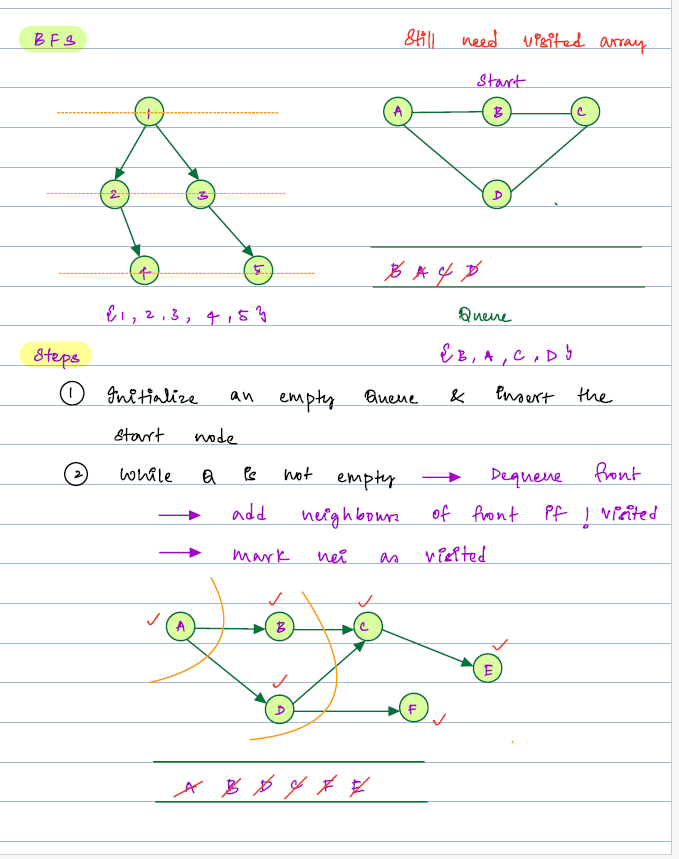 BFS
Still need visited array
Start
1
A B C
2 3
D
4 5
B A C D
{1, 2, 3, 4, 5}
Queue
Steps
{B, A, C, D}
① Initialize an empty Queue & insert the
start node
② While Q is not empty → Dequeue front
→ add neighbours of front if ! visited
→ mark nei as visited
A B C
E
D F
A B D C F E